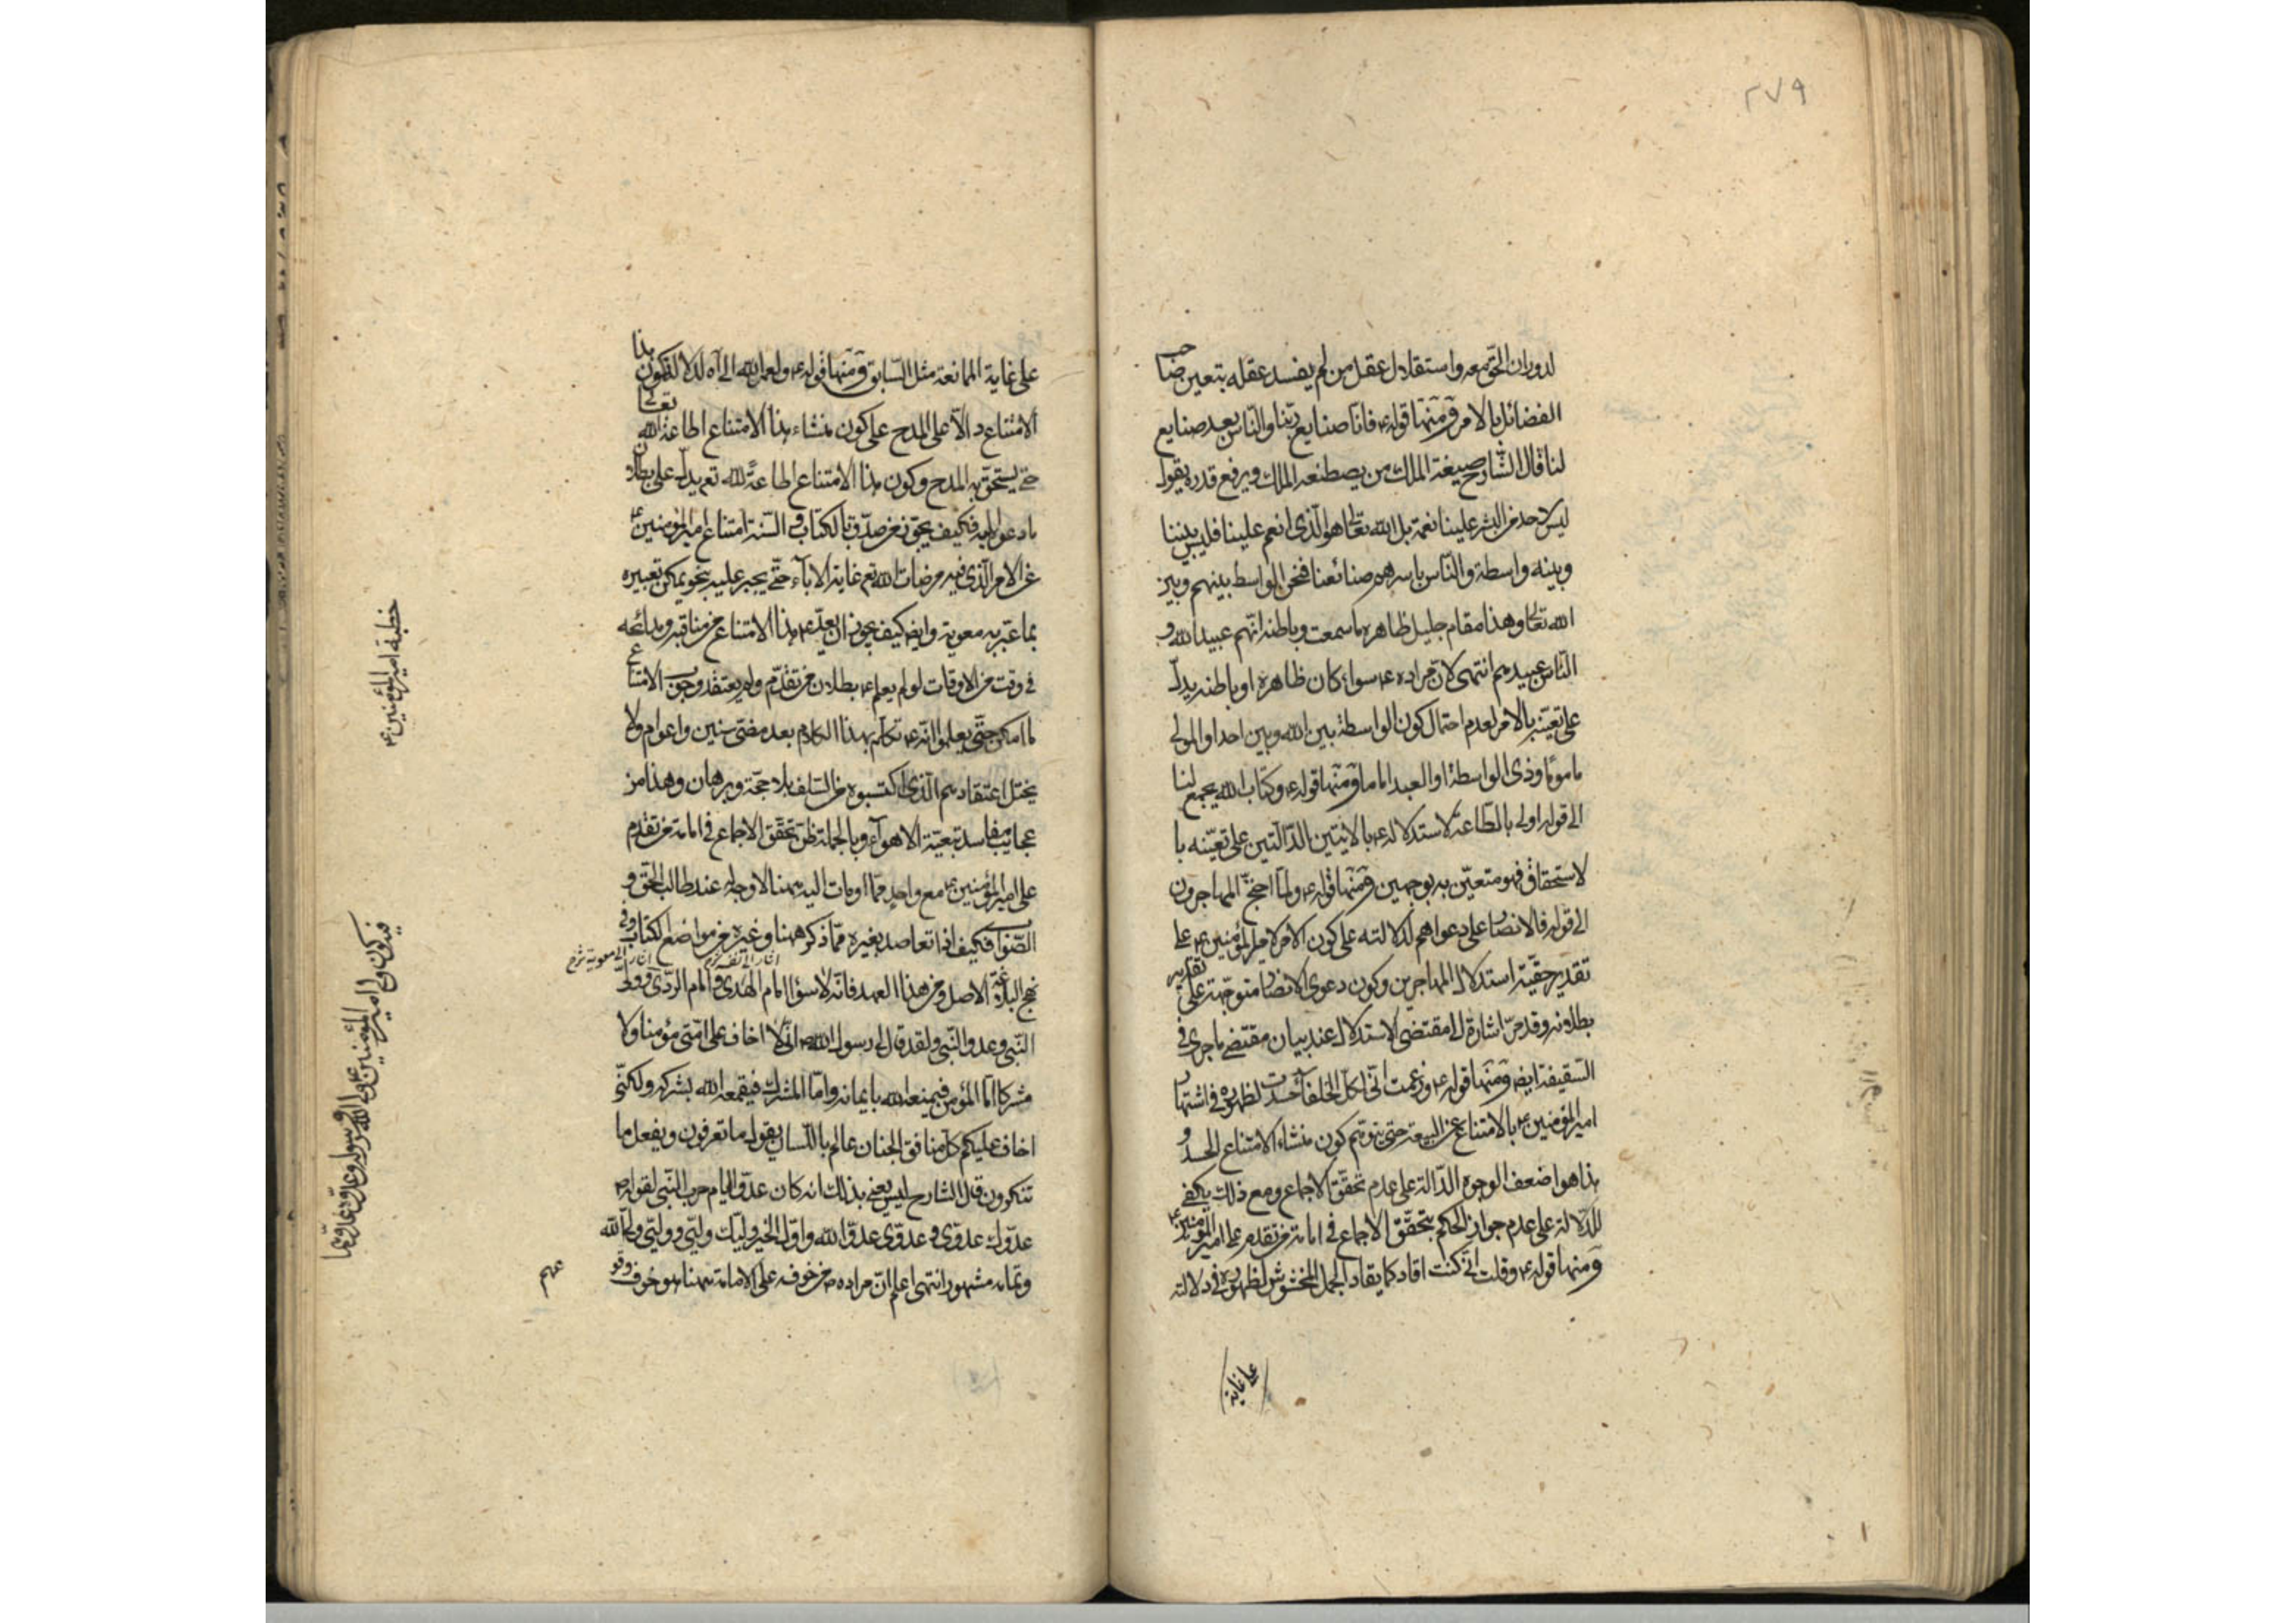 ٢٧٩
لدوران الحق معه واستقلال عقل من لم يفسد عقله بتعين صاحب
الفضائل بالامر ومنها قوله ع فانا صنايع ربنا والناس بعد صنايع
لنا قال الشارح صيغة الملك من يصطنعه الملك ويرفع قدره يقول
ليس لاحد من البشر علينا نعمة بل الله تعالى هو الذي انعم علينا فليس بيننا
وبينه واسطة والناس باسرهم صنائعنا فنحن الواسطة بينهم وبين
الله تعالى وهذا مقام جليل ظاهره ما سمعت وباطنه انهم عبيد الله و
الناس عبيدهم انتهى لان مراده ع سواء كان ظاهره او باطنه يدل
على تعينه بالامر لعدم احتمال كون الواسطة بين الله وبين احد او المولى
ماموما وذى الواسطة او العبد اماما ومنها قوله ع وكتاب الله يجمع لنا
الى قوله اولى بالطاعة لاستدلاله ع بالايتين الدالتين على تعينه با
لاستحقاق فهو متعين به بوجهين ومنها قوله ع ولما احتج المهاجرون
الى قوله فالانصار على دعواهم لدلالته على كون الامر لامير المؤمنين ع على
تقدير حقية استدلال المهاجرين وكون دعوى الانصار متوجهة على تقدير
بطلانه وقد مر اشارة الى مقتضى الاستدلال عند بيان مقتضى ما جرى في
السقيفة ايضا ومنها قوله ع وزعمت اني لكل الخلفاء حسدت لظهوره في اشتهار
امير المؤمنين ع بالامتناع عن البيعة حتى يتوهم كون منشاء الامتناع الحسد و
هذا هو اضعف الوجوه الدالة على عدم تحقق الاجماع ومع ذلك يكفي
للدلالة على عدم جواز الحكم بتحقق الاجماع في امامة من تقدم على امير المؤمنين ع
ومنها قوله ع وقلت اني كنت اقاد كما يقاد الجمل المخشوش لظهوره في دلالته
على غاية
على غاية الممانعة مثل السابق ومنها قوله ع ولعمر الله الى آه لدلالة كون هذا
الامتناع دالا على المدح على كون منشاء هذا الامتناع اطاعة الله تعالى
حتى يستحق به المدح وكون هذا الامتناع اطاعة لله تعم يدل على بطلان
ما دعوا اليه فكيف يجوز من صدق بالكتاب والسنة امتناع امير المؤمنين ع
عن الامر الذي فيه مرضات الله تعم غاية الاباء حتى يجبر عليه بنحو يمكن تعبيره
بما عبر به معوية وايضا كيف يجوز ان يعد ع هذا الامتناع من مناقبه ومدائحه
في وقت من الاوقات لو لم يعلم ع بطلان من تقدم ولم يعتقد وجوب الامتناع
لما امكن حتى يعلموا انه ع تكلم بهذا الكلام بعد مضى سنين واعوام ولا
يختل اعتقادهم الذي اكتسبوه من السلف بلا حجة وبرهان وهذا من
عجايب مفاسد تبعية الاهواء وبالجملة ظن تحقق الاجماع في امامة من تقدم
على امير المؤمنين ع مع واحد مما اومات اليه ههنا لا وجه له عند طالب الحق و
الصواب فكيف اذا تعاضد بغيره مما ذكر ههنا وغيره من مواضع الكتاب وفي
اشار الى نفسه اشار الى معوية
نهج البلاغة الاصل ومن هذا العهد فانه لا سواء امام الهدى وامام الردى وولى
النبي وعدو النبي ولقد قال لي رسول الله ص اني لا اخاف على امتى مؤمنا ولا
مشركا اما المؤمن فيمنعه الله بايمانه واما المشرك فيقمعه الله بشركه ولكني
اخاف عليكم كل منافق الجنان عالم باللسان يقول ما تعرفون ويفعل ما
تنكرون قال الشارح ليس يعني بذلك انه كان عدوا ايام حرب النبي لقوله ص
عدوك عدوى وعدوى عدو الله واول الخبر وليك وليي ووليي ولى الله
وتمامه مشهور انتهى اعلم ان مراده ص من خوفه على الامامة ههنا هو خوف وقو
عهم
خطبة امير المؤمنين ع
فيكون ولى امير المؤمنين ع ولى الله ورسوله وعدوه عدوهما